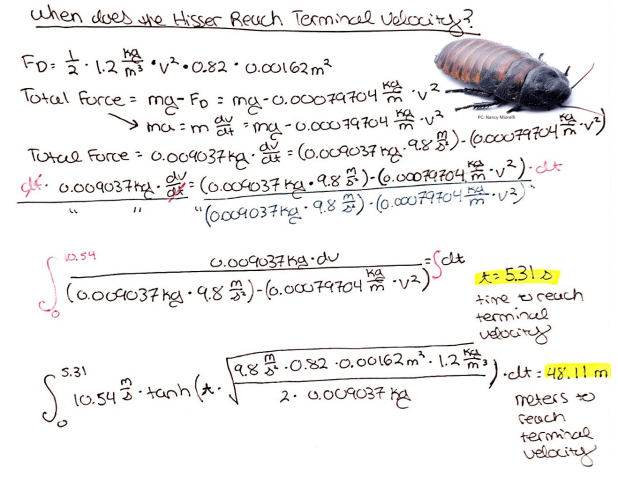 When does the Hisser Reach Terminal Velocity?
F_D = 1/2 · 1.2 kg/m³ · v² · 0.82 · 0.00162 m²
Total Force = mg - F_D = mg - 0.00079704 kg/m · v²
→ ma = m dv/dt = mg - 0.00079704 kg/m · v²
PC: Nancy Miorelli
Total Force = 0.009037 kg · dv/dt = (0.009037 kg · 9.8 m/s²) - (0.00079704 kg/m · v²)
dt · 0.009037 kg · dv/dt = (0.009037 kg · 9.8 m/s²) - (0.00079704 kg/m · v²) · dt
" " " (0.009037 kg · 9.8 m/s²) - (0.00079704 kg/m · v²) "
∫₀^10.54 0.009037 kg · dv / (0.009037 kg · 9.8 m/s²) - (0.00079704 kg/m · v²) = ∫dt
t = 5.31 s
time to reach
terminal
velocity
∫₀^5.31 10.54 m/s · tanh(t · √(9.8 m/s² · 0.82 · 0.00162 m² · 1.2 kg/m³ / 2 · 0.009037 kg)) · dt = 48.11 m
meters to
reach
terminal
velocity